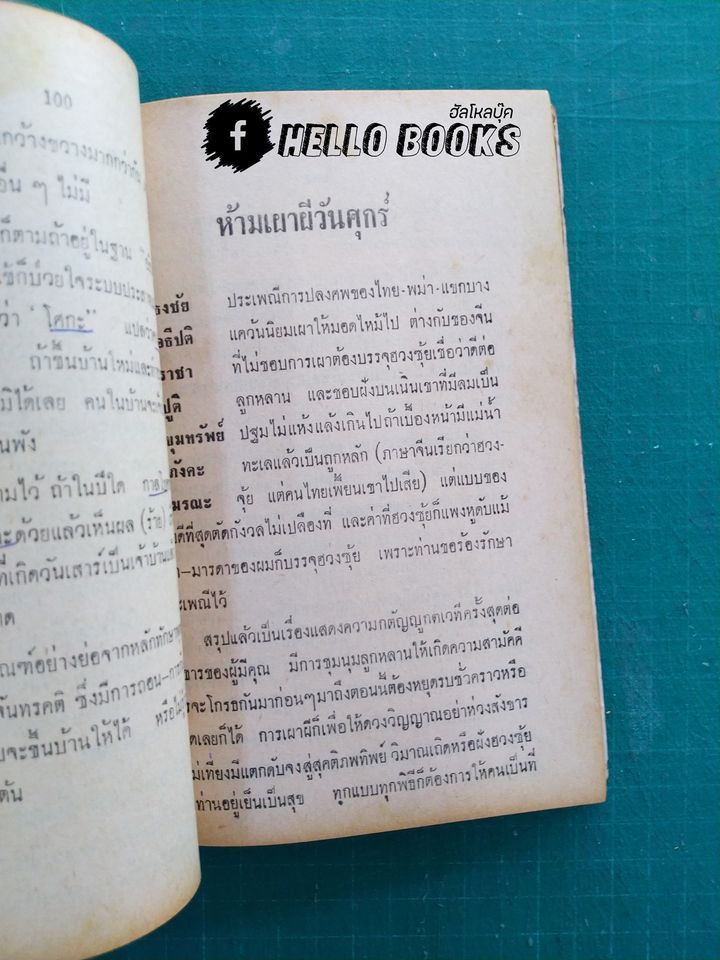 100
กว้างขวางมากกว่ากัน
อื่น ๆ ไม่มี
ก็ตามถ้าอยู่ในฐาน
ใช้ก็ป่วยใจระบบประสาท
ว่า "โศกะ" แปลว่า
ถ้าขึ้นบ้านใหม่และ
มิได้เลย คนในบ้านจะ
นพัง
ามไว้ ถ้าในปีใด
ะด้วยแล้วเห็นผล (ร้าย)
ที่เกิดวันเสาร์เป็นเจ้าบ้าน
าด
ณฑ์อย่างย่อจากหลักทักษา
จันทรคติ ซึ่งมีการถอน-
บจะขึ้นบ้านให้ได้ หรือ
ต้น
ฮัลโหลบุ๊ค
f HELLO BOOKS
ห้ามเผาผีวันศุกร์
ธงชัย ประเพณีการปลงศพของไทย-พม่า-แขกบาง
อธิปติ แคว้นนิยมเผาให้มอดไหม้ไป ต่างกับของจีน
ราชา ที่ไม่ชอบการเผาต้องบรรจุฮวงซุ้ยเชื่อว่าดีต่อ
ปูติ ลูกหลาน และชอบฝังบนเนินเขาที่มีลมเป็น
ขุมทรัพย์ ปฐมไม่แห้งแล้งเกินไปถ้าเบื้องหน้ามีแม่น้ำ
ภังคะ ทะเลแล้วเป็นถูกหลัก (ภาษาจีนเรียกว่าฮวง-
มรณะ จุ้ย แต่คนไทยเพี้ยนเขาไปเสีย) แต่แบบของ
ดีที่สุดตัดกังวลไม่เปลืองที่ และค่าที่ฮวงซุ้ยก็แพงหูดับแม้
า-มารดาของผมก็บรรจุฮวงซุ้ย เพราะท่านขอร้องรักษา
ะเพณีไว้
สรุปแล้วเป็นเรื่องแสดงความกตัญญูกตเวทีครั้งสุดต่อ
ขารของผู้มีคุณ มีการชุมนุมลูกหลานให้เกิดความสามัคคี
รจะโกรธกันมาก่อนๆมาถึงตอนนี้ต้องหยุดรบชั่วคราวหรือ
ดเลยก็ได้ การเผาผีก็เพื่อให้ดวงวิญญาณอย่าห่วงสังขาร
ม่เที่ยงมีแตกดับจงสู่สุคติภพทิพย์ วิมาณเถิดหรือฝังฮวงซุ้ย
ท่านอยู่เย็นเป็นสุข ทุกแบบทุกพิธีก็ต้องการให้คนเป็นที่